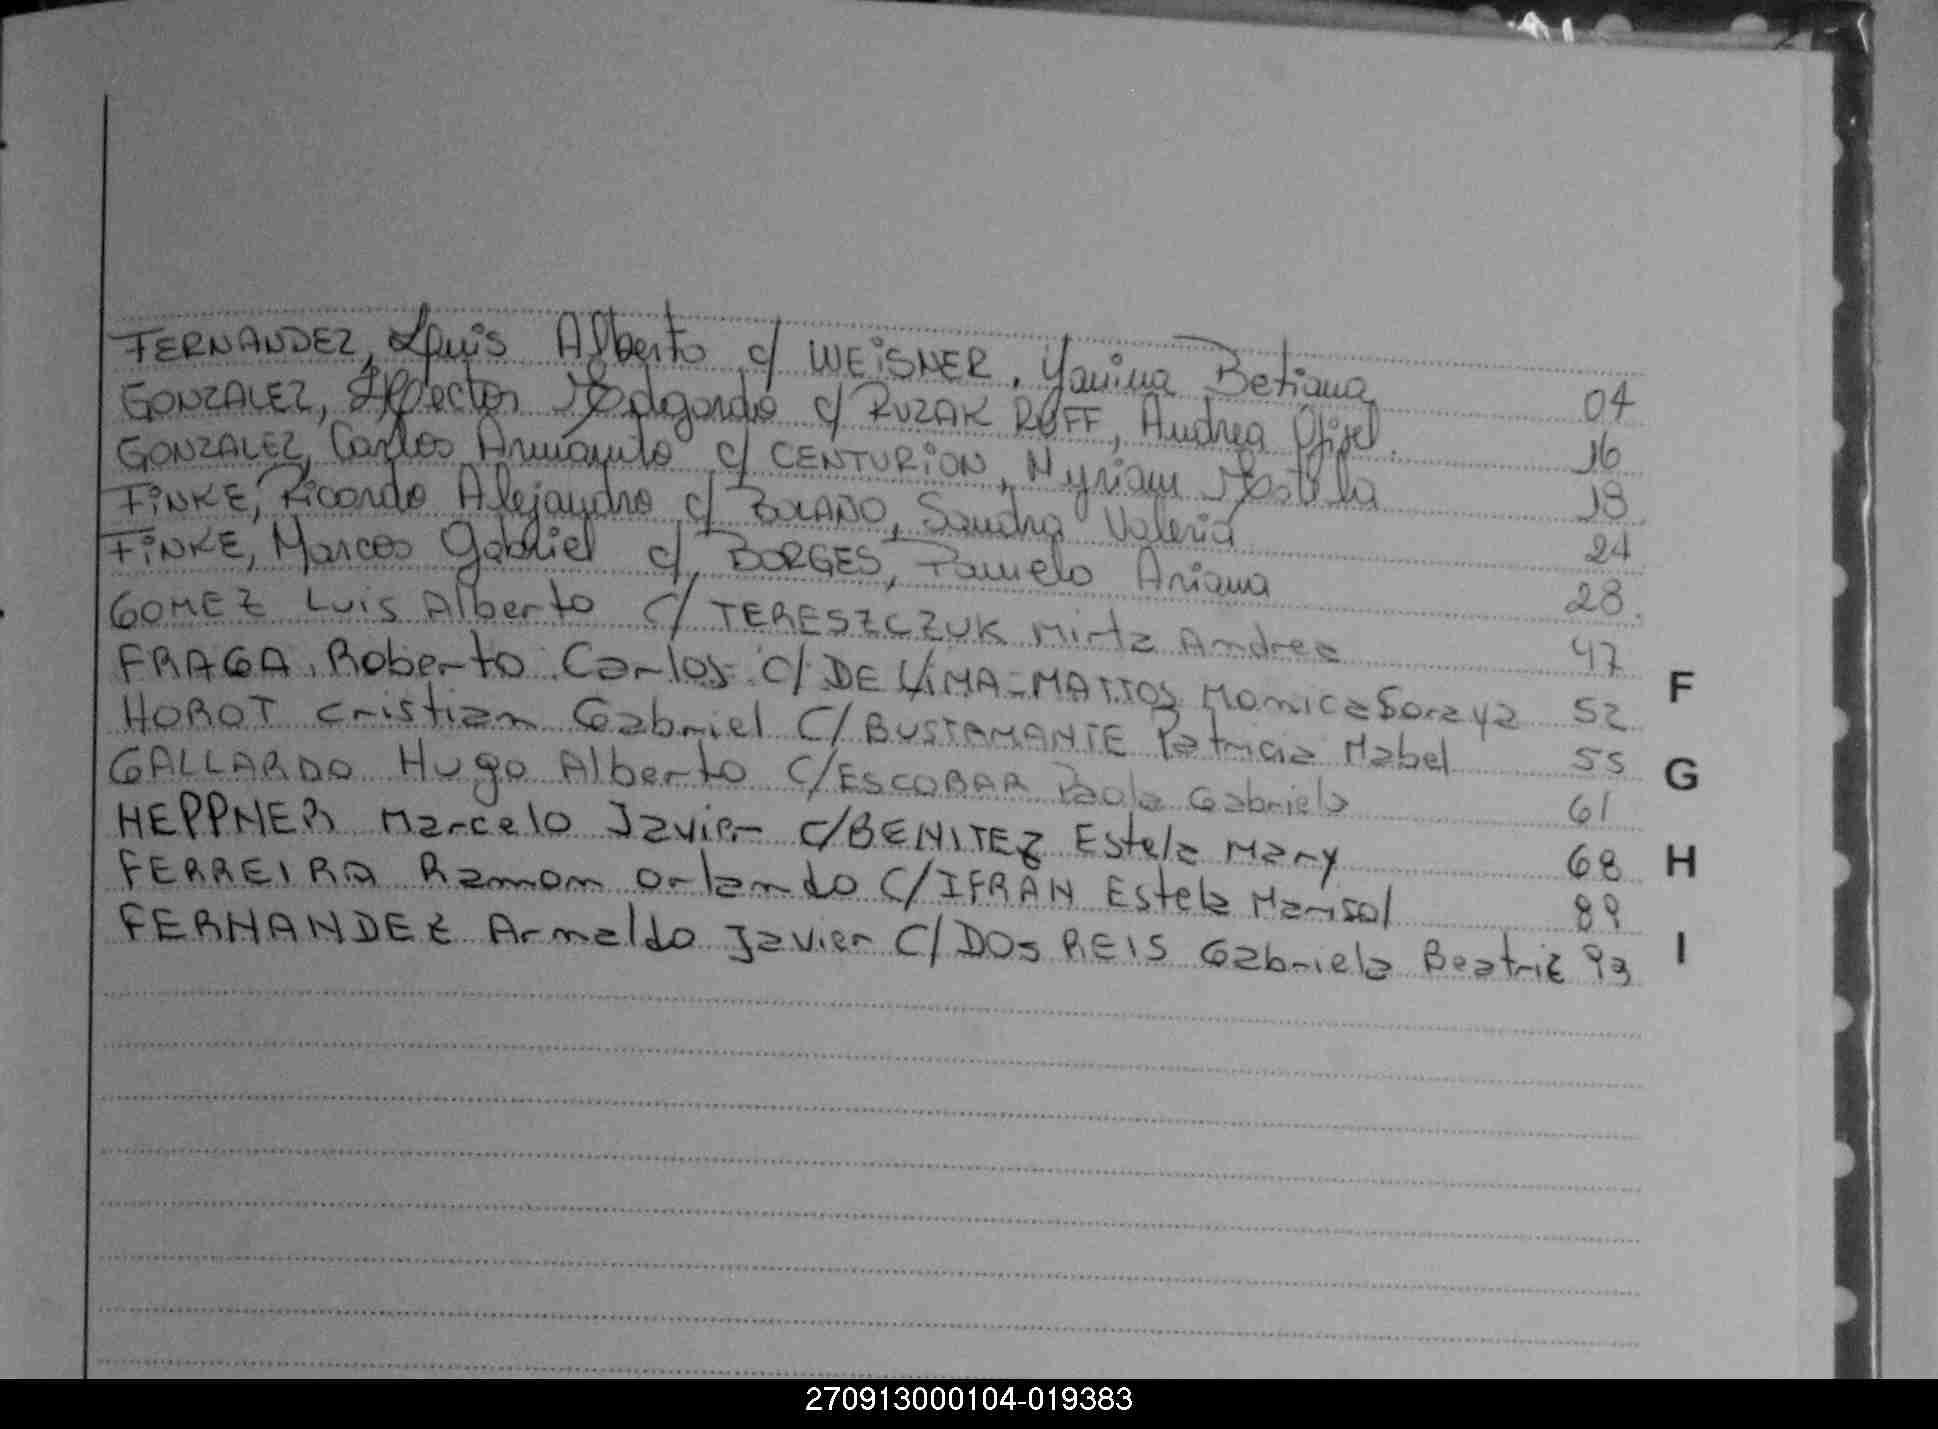 FERNANDEZ, Luis Alberto c/ WEISNER, Yanina Betiana 04
GONZALEZ, Hector Edgardo c/ RUZAK ROFF, Andrea Gisel. 16
GONZALEZ, Carlos Armando c/ CENTURION, Myriam Estela 18
FINKE, Ricardo Alejandro c/ BOLAÑO, Sandra Valeria 24
FINKE, Marcos Gabriel c/ BORGES, Pamela Ariana 28
GOMEZ Luis Alberto c/ TERESZCZUK Mirta Andrea 47
FRAGA, Roberto Carlos c/ DE LIMA-MATTOS Monica Soraya 52
F
HOROT Cristian Gabriel C/ BUSTAMANTE Patricia Mabel 55
GALLARDO Hugo Alberto C/ ESCOBAR Paola Gabriela 61
G
HEPPNER Marcelo Javier C/ BENITEZ Estela Mary 68
H
FERREIRA Ramon Orlando C/ IFRAN Estela Marisol 89
FERNANDEZ Arnaldo Javier C/ DOS REIS Gabriela Beatriz 93
I
270913000104-019383